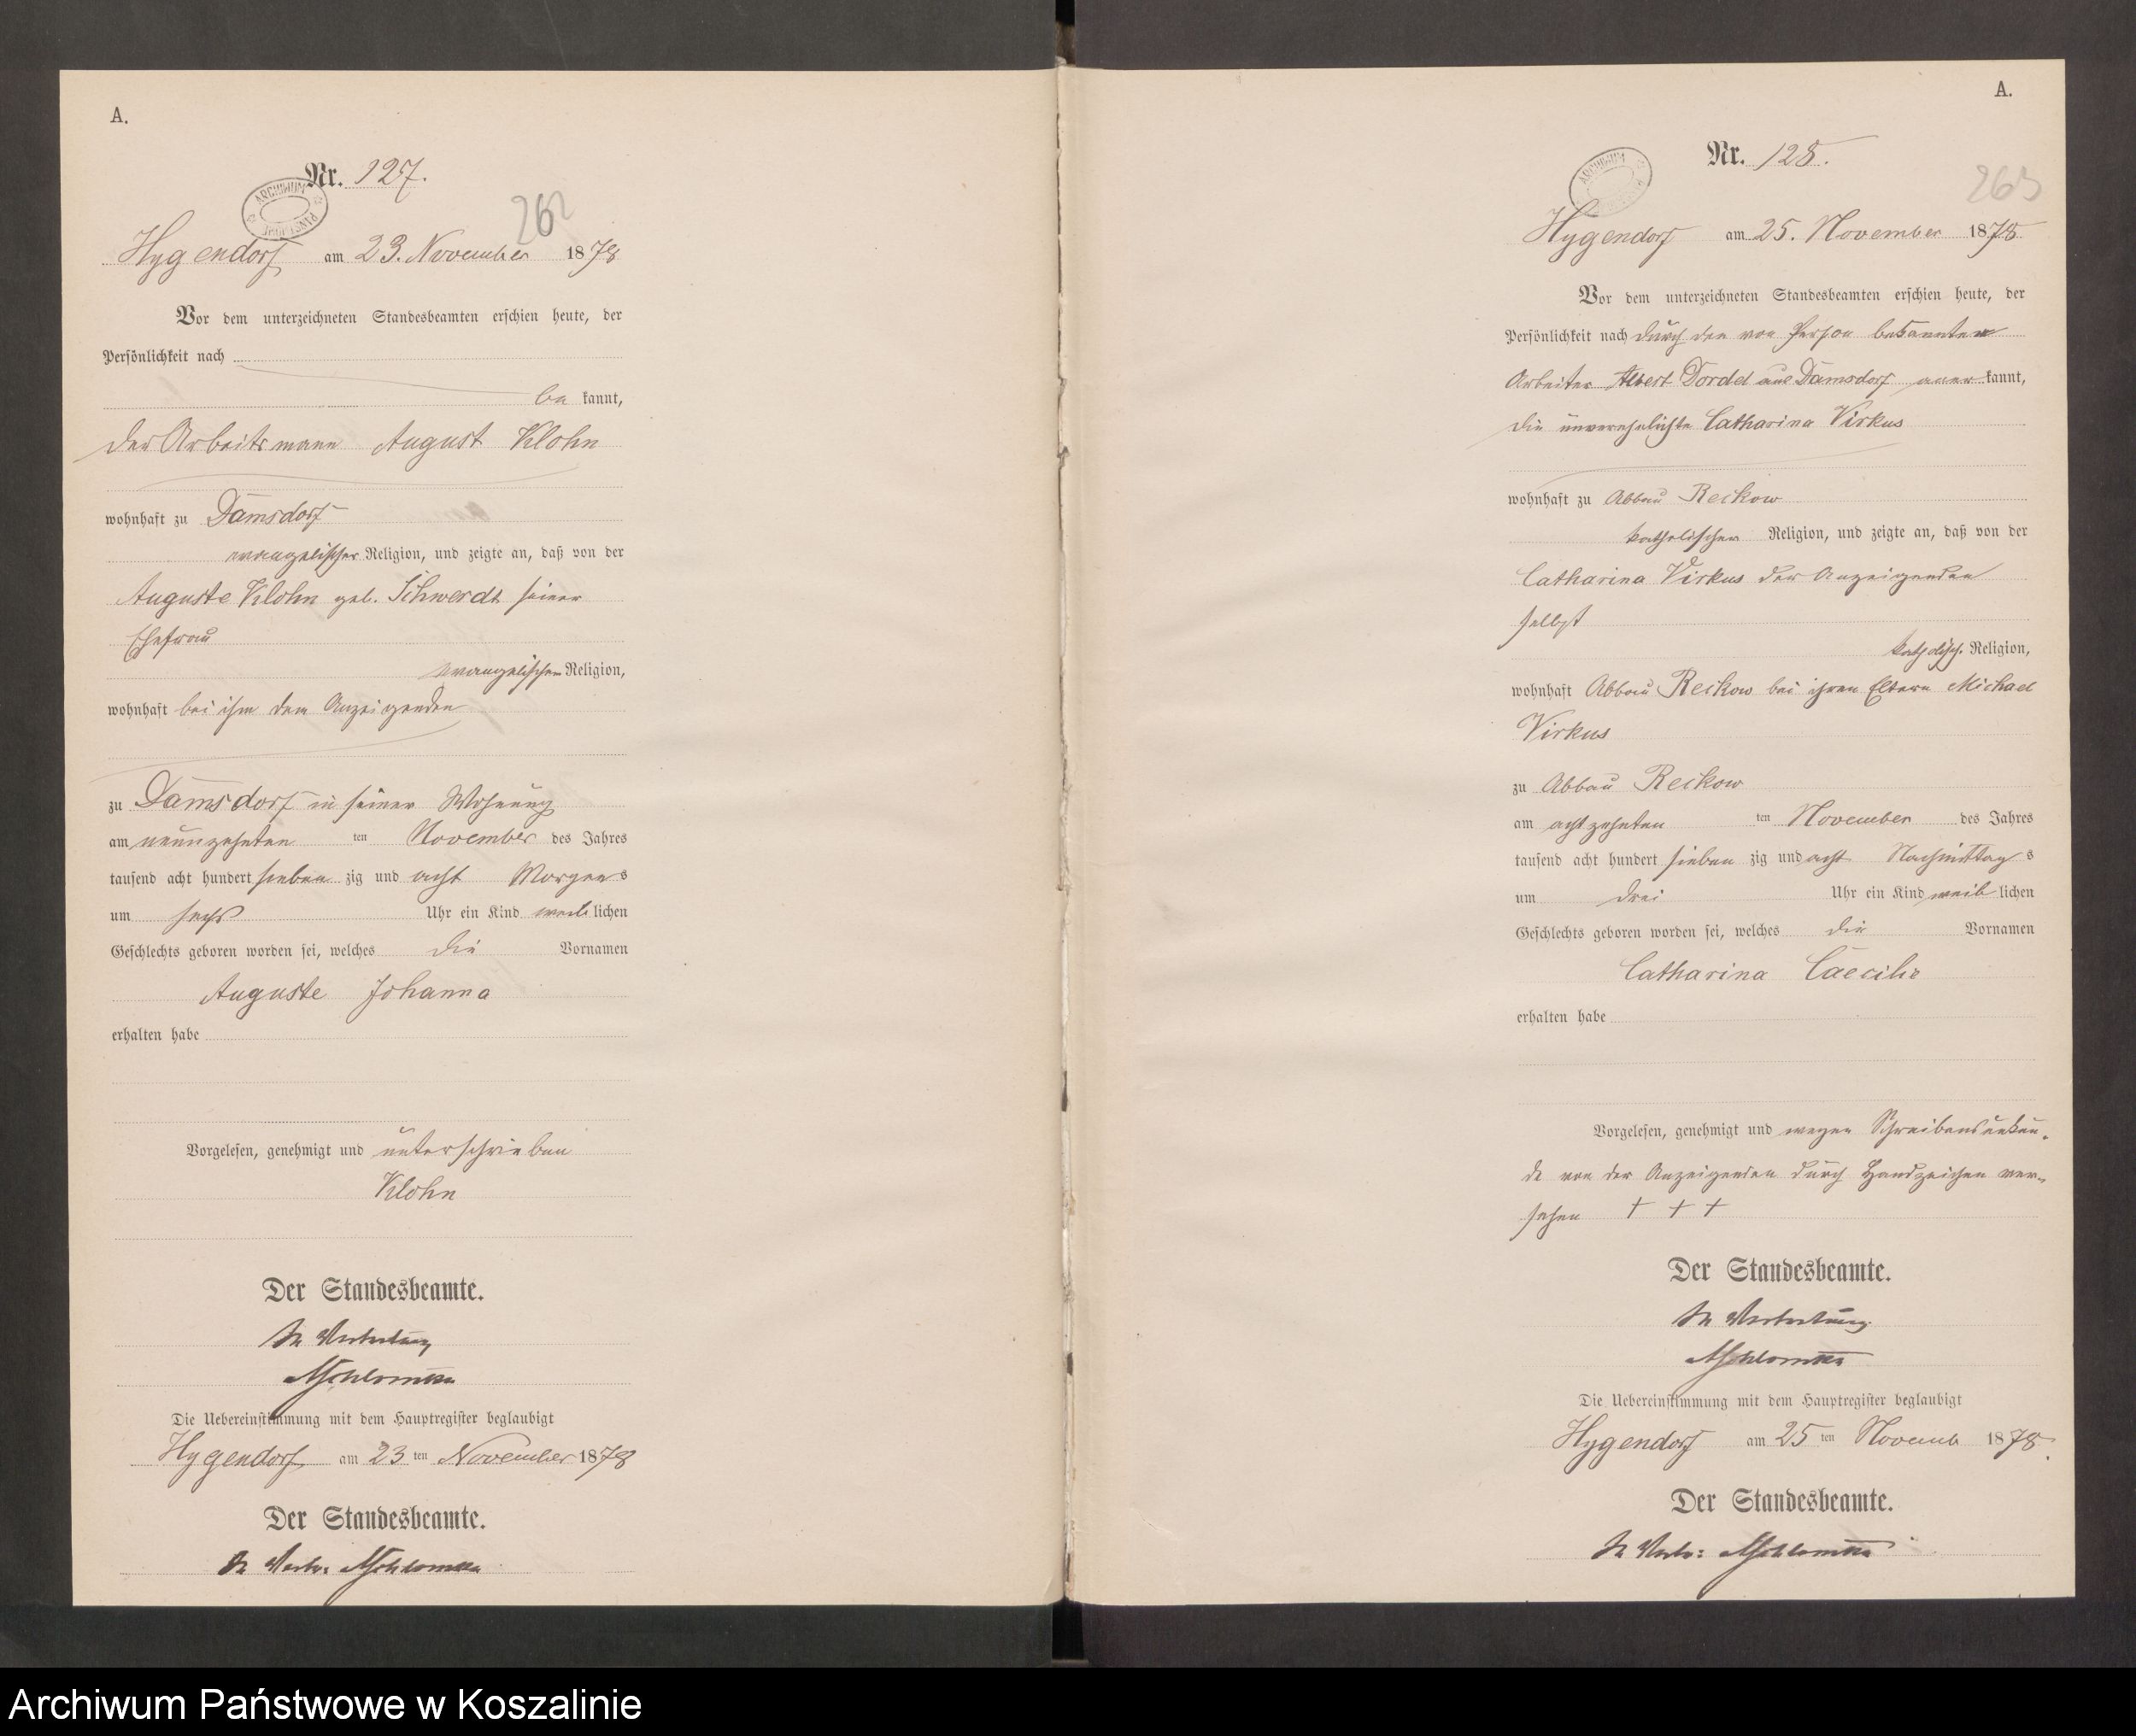 A.
Nr. 127.
262
ARCHIWUM
Hygendorf am 23. November 1878
Vor dem unterzeichneten Standesbeamten erschien heute, der
Persönlichkeit nach
be kannt,
der Arbeitsmann August Klohn
wohnhaft zu Damsdorf
evangelischer Religion, und zeigte an, daß von der
Auguste Klohn geb. Schwerdt seiner
Ehefrau
evangelischen Religion,
wohnhaft bei ihm dem Anzeigenden
zu Damsdorf in seiner Wohnung
am neunzehnten ten November des Jahres
tausend acht hundert sieben zig und acht Morgens
um sechs Uhr ein Kind weib lichen
Geschlechts geboren worden sei, welches die Vornamen
Auguste Johanna
erhalten habe
Vorgelesen, genehmigt und unterschrieben
Klohn
Der Standesbeamte.
In Vertretung
Die Uebereinstimmung mit dem Hauptregister beglaubigt
Hygendorf am 23 ten November 1878
Der Standesbeamte.
In Vertr:
A.
Nr. 128.
263
ARCHIWUM
Hygendorf am 25. November 1878
Vor dem unterzeichneten Standesbeamten erschien heute, der
Persönlichkeit nach durch den von Person bekannten
Arbeiter Albert Dordel aus Damsdorf aner kannt,
die unverehelichte Catharina Virkus
wohnhaft zu Abbau Reckow
katholischen Religion, und zeigte an, daß von der
Catharina Virkus der Anzeigenden
selbst
katholisch. Religion,
wohnhaft Abbau Reckow bei ihren Eltern Michael
Virkus
zu Abbau Reckow
am achtzehnten ten November des Jahres
tausend acht hundert sieben zig und acht Nachmittag s
um drei Uhr ein Kind weib lichen
Geschlechts geboren worden sei, welches die Vornamen
Catharina Caecilie
erhalten habe
Vorgelesen, genehmigt und wegen Schreibensunkun-
de von der Anzeigenden durch Handzeichen ver-
sehen + + +
Der Standesbeamte.
In Vertretung
Die Uebereinstimmung mit dem Hauptregister beglaubigt
Hygendorf am 25 ten Novemb 1878.
Der Standesbeamte.
In Vertr:
Archiwum Państwowe w Koszalinie